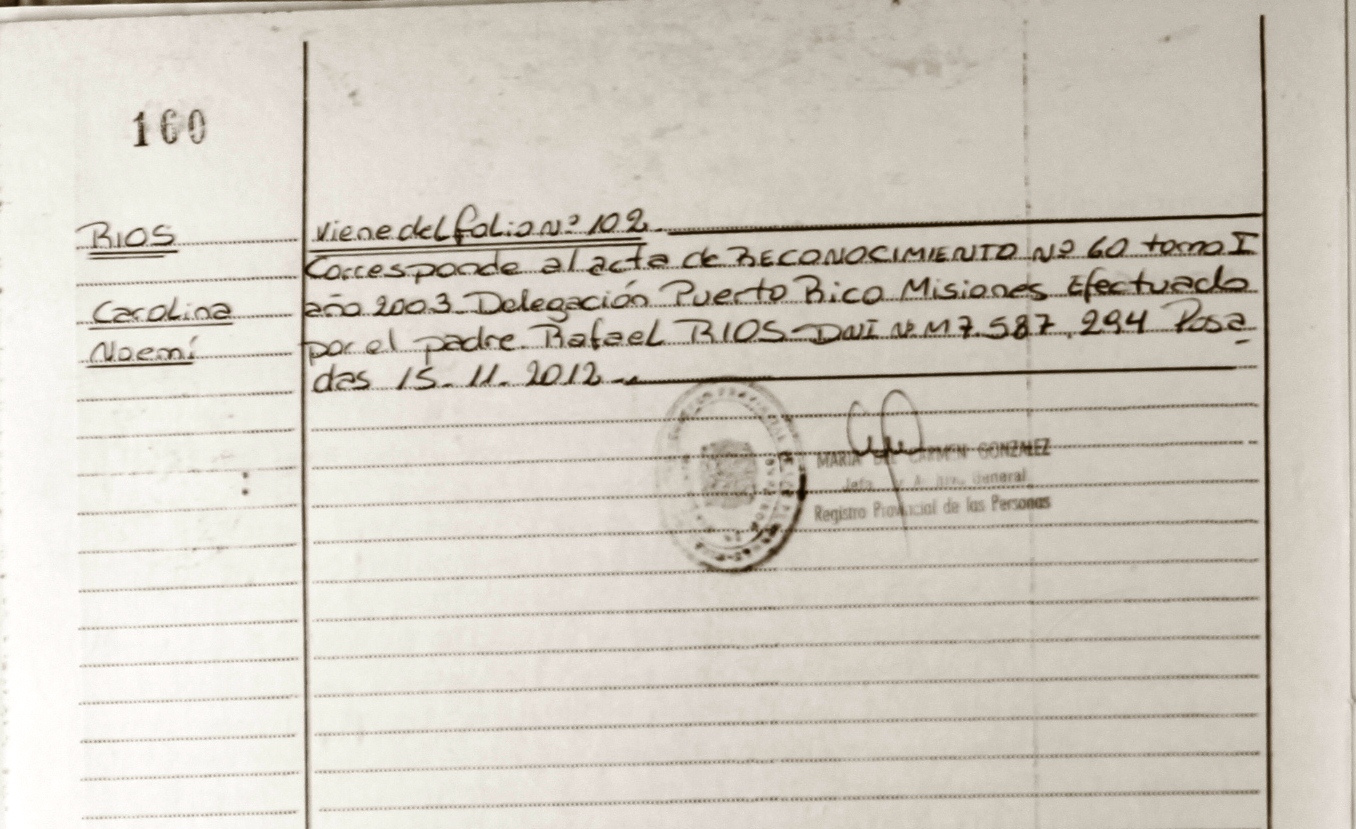 160
RIOS
Carolina
Noemí
Viene del folio Nº 102.
Corresponde al acta de RECONOCIMIENTO Nº 60 tomo I
año 2003 Delegación Puerto Rico Misiones Efectuado
por el padre Rafael RIOS- DNI Nº M7.587.294 Posa
das 15-11-2012-
MARIA DEL CARMEN GONZALEZ
Jefa General
Registro Provincial de las Personas